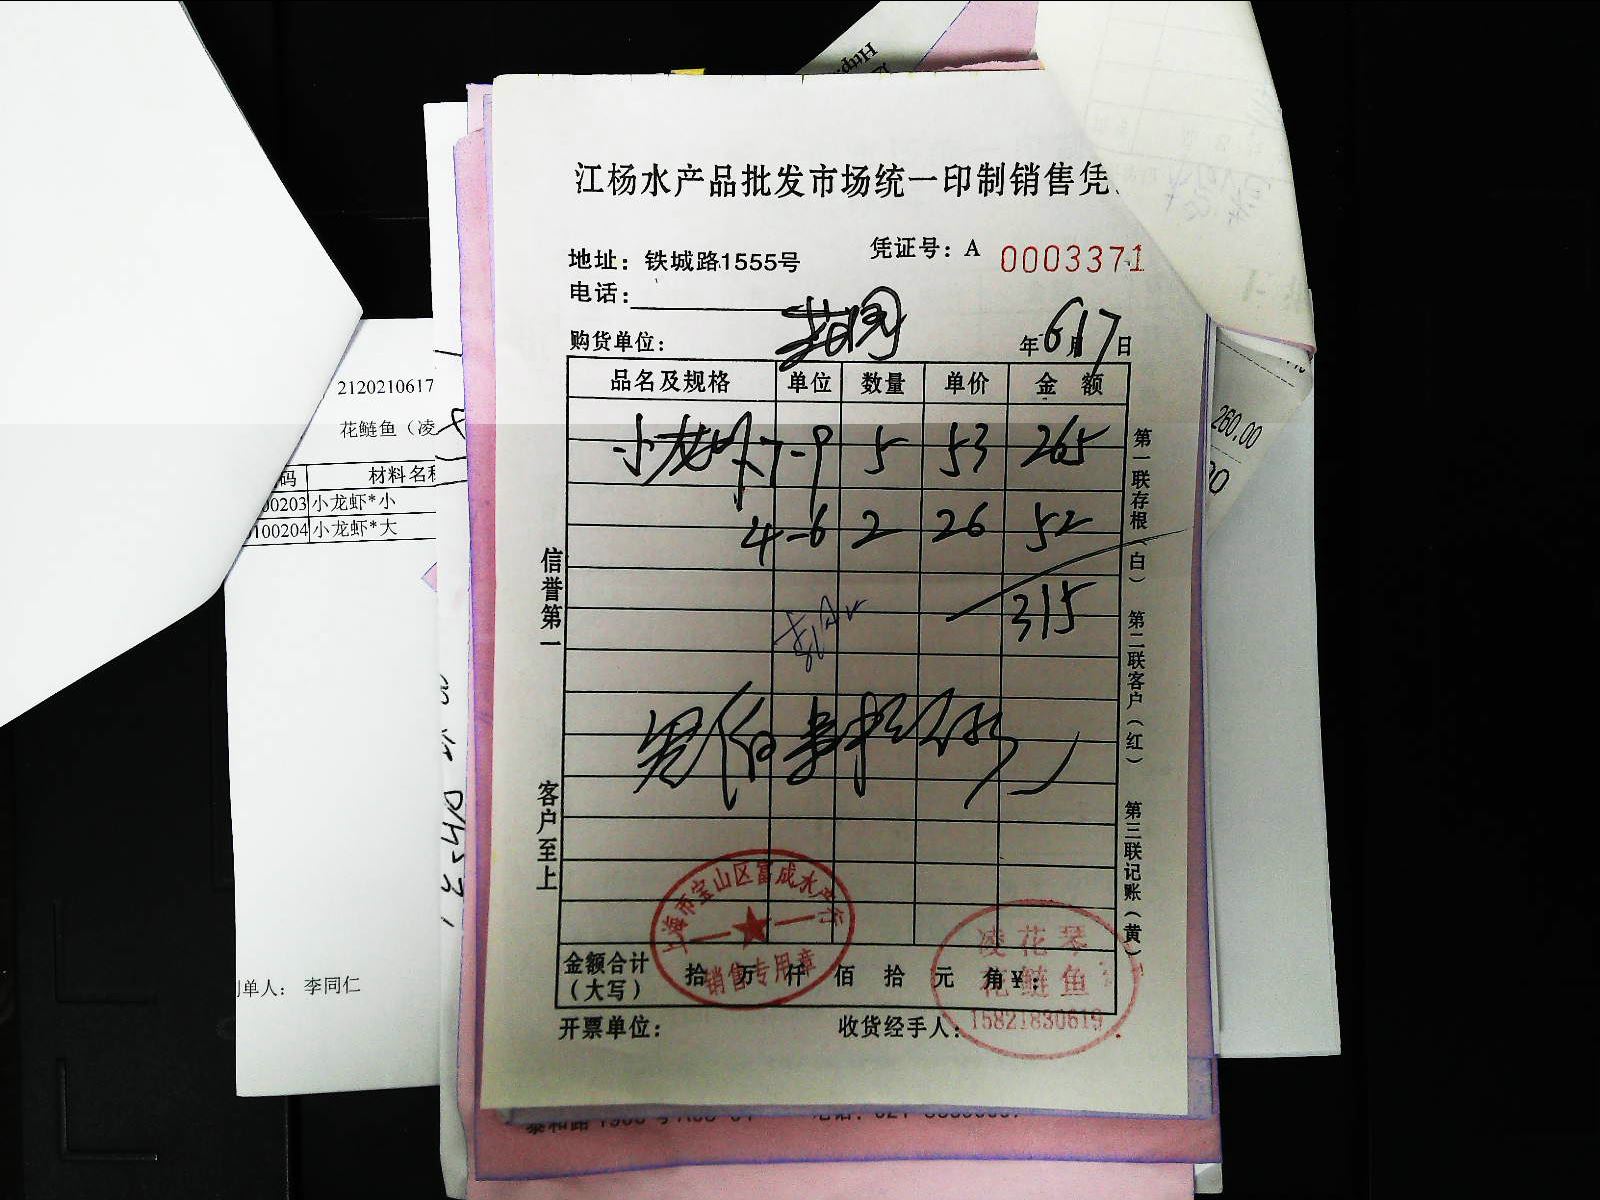 江杨水产品批发市场统一印制销售凭
地址：铁城路1555号
凭证号：A 0003371
电话：
购货单位：
年6月17日
品名及规格 单位 数量 单价 金 额
小龙虾 7-9 5 53 265
4-6 2 26 52
315
信誉第一
客户至上
第一联存根（白）
第二联客户（红）
第三联记账（黄）
上海市宝山区富成水产行
销售专用章
凌花琴
花鲢鱼
15821830619
金额合计（大写） 拾 万 仟 佰 拾 元 角 ¥：
开票单位：
收货经手人：
2120210617
花鲢鱼（凌
码 材料名称
00203 小龙虾*小
100204 小龙虾*大
制单人： 李同仁
260.00
Http